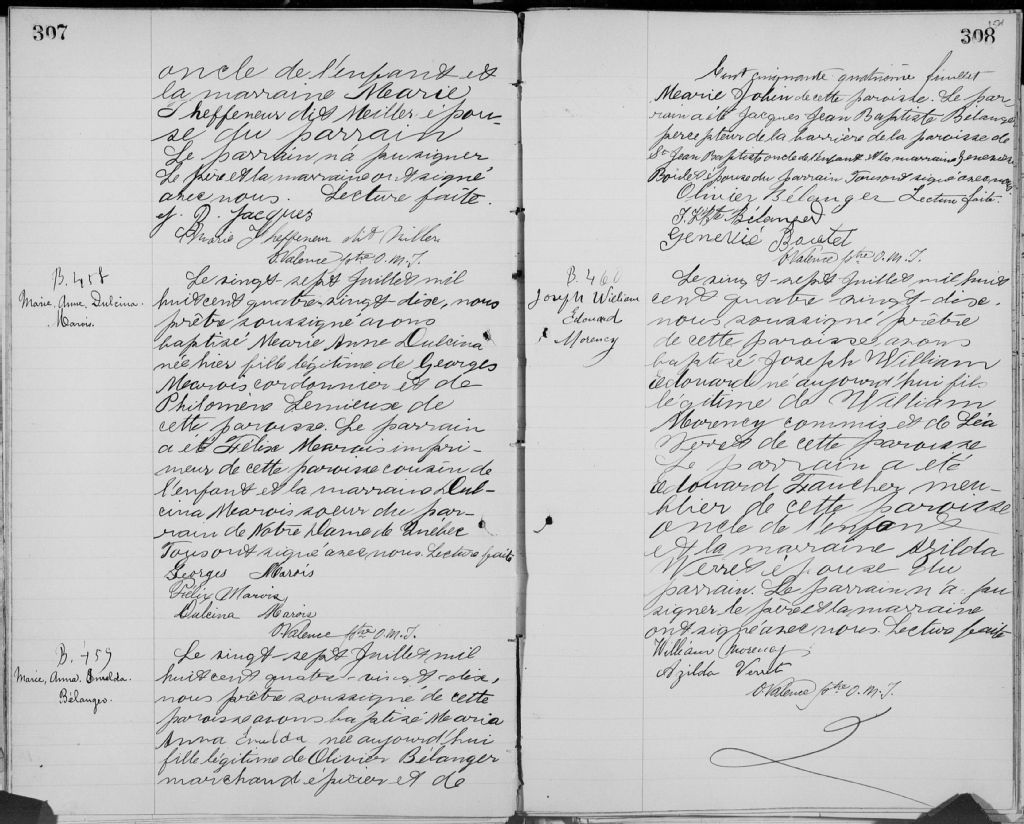 307
oncle de l'enfant et
la marraine Marie
Theffeneur dit Meiller épou-
se du parrain
Le parrain n'a pu signer
Le père et la marraine ont signé
avec nous. Lecture faite.
J. D. Jacques
Marie Theffeneur dit
Valence ptre O.M.I.
B. 458
Marie, Anne, Dulcina.
Marois.
Le vingt sept Juillet mil
huit cent quatre-vingt dix, nous
prêtre soussigné avons
baptisé Marie Anne Dulcina
née hier fille légitime de Georges
Marois cordonnier et de
Philomène Lemieux de
cette paroisse. Le parrain
a été Félix Marois impri-
meur de cette paroisse cousin de
l'enfant et la marraine Dul-
cina Marois soeur du par-
rain de Notre Dame de Québec
Tous ont signé avec nous. Lecture faite
Georges Marois
Félix Marois
Dulcina Marois
Valence ptre O.M.I.
B. 459
Marie, Anna. Emelda.
Bélanger.
Le vingt-sept Juillet mil
huit cent quatre-vingt-dix,
nous prêtre soussigné de cette
paroisse avons baptisé Maria
Anna Emelda née aujourd'hui
fille légitime de Olivier Bélanger
marchand épicier et de
308
154
Cent cinquante quatrième feuillet
Marie Jobin de cette paroisse. Le par-
rain a été Jacques Jean Baptiste Bélanger
percepteur de la barrière de la paroisse de
St Jean Baptiste oncle de l'enfant et la marraine Geneviève
Boutet épouse du parrain Tous ont signé avec nous.
Olivier Bélanger Lecture faite.
J. J. Bte Bélanger
Genevié Boutet
Valence ptre O.M.I.
B. 460
Joseph William
Edouard
Morency
Le vingt-sept Juillet mil huit
cent quatre vingt dix.
nous soussigné prêtre
de cette paroisse avons
baptisé Joseph William
Edouard né aujourd'hui fils
légitime de William
Morency commis et de Léa
Verret de cette paroisse
Le parrain a été
Edouard Faucher meu-
blier de cette paroisse
oncle de l'enfant
et la marraine Azilda
Verret épouse du
parrain. Le parrain n'a pu
signer le père et la marraine
ont signé avec nous. Lecture faite
William Morency
Azilda Verret
Valence ptre O.M.I.